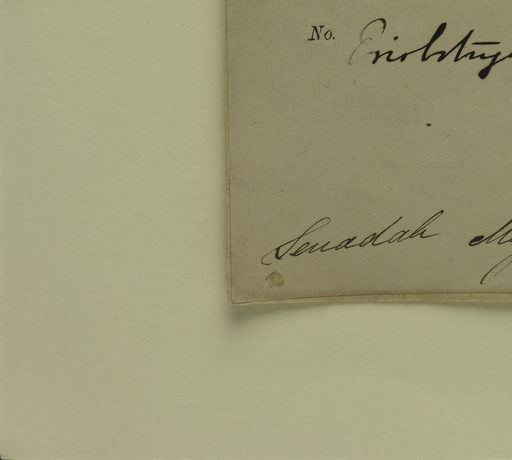 No. Eriolstyg
Senadah My